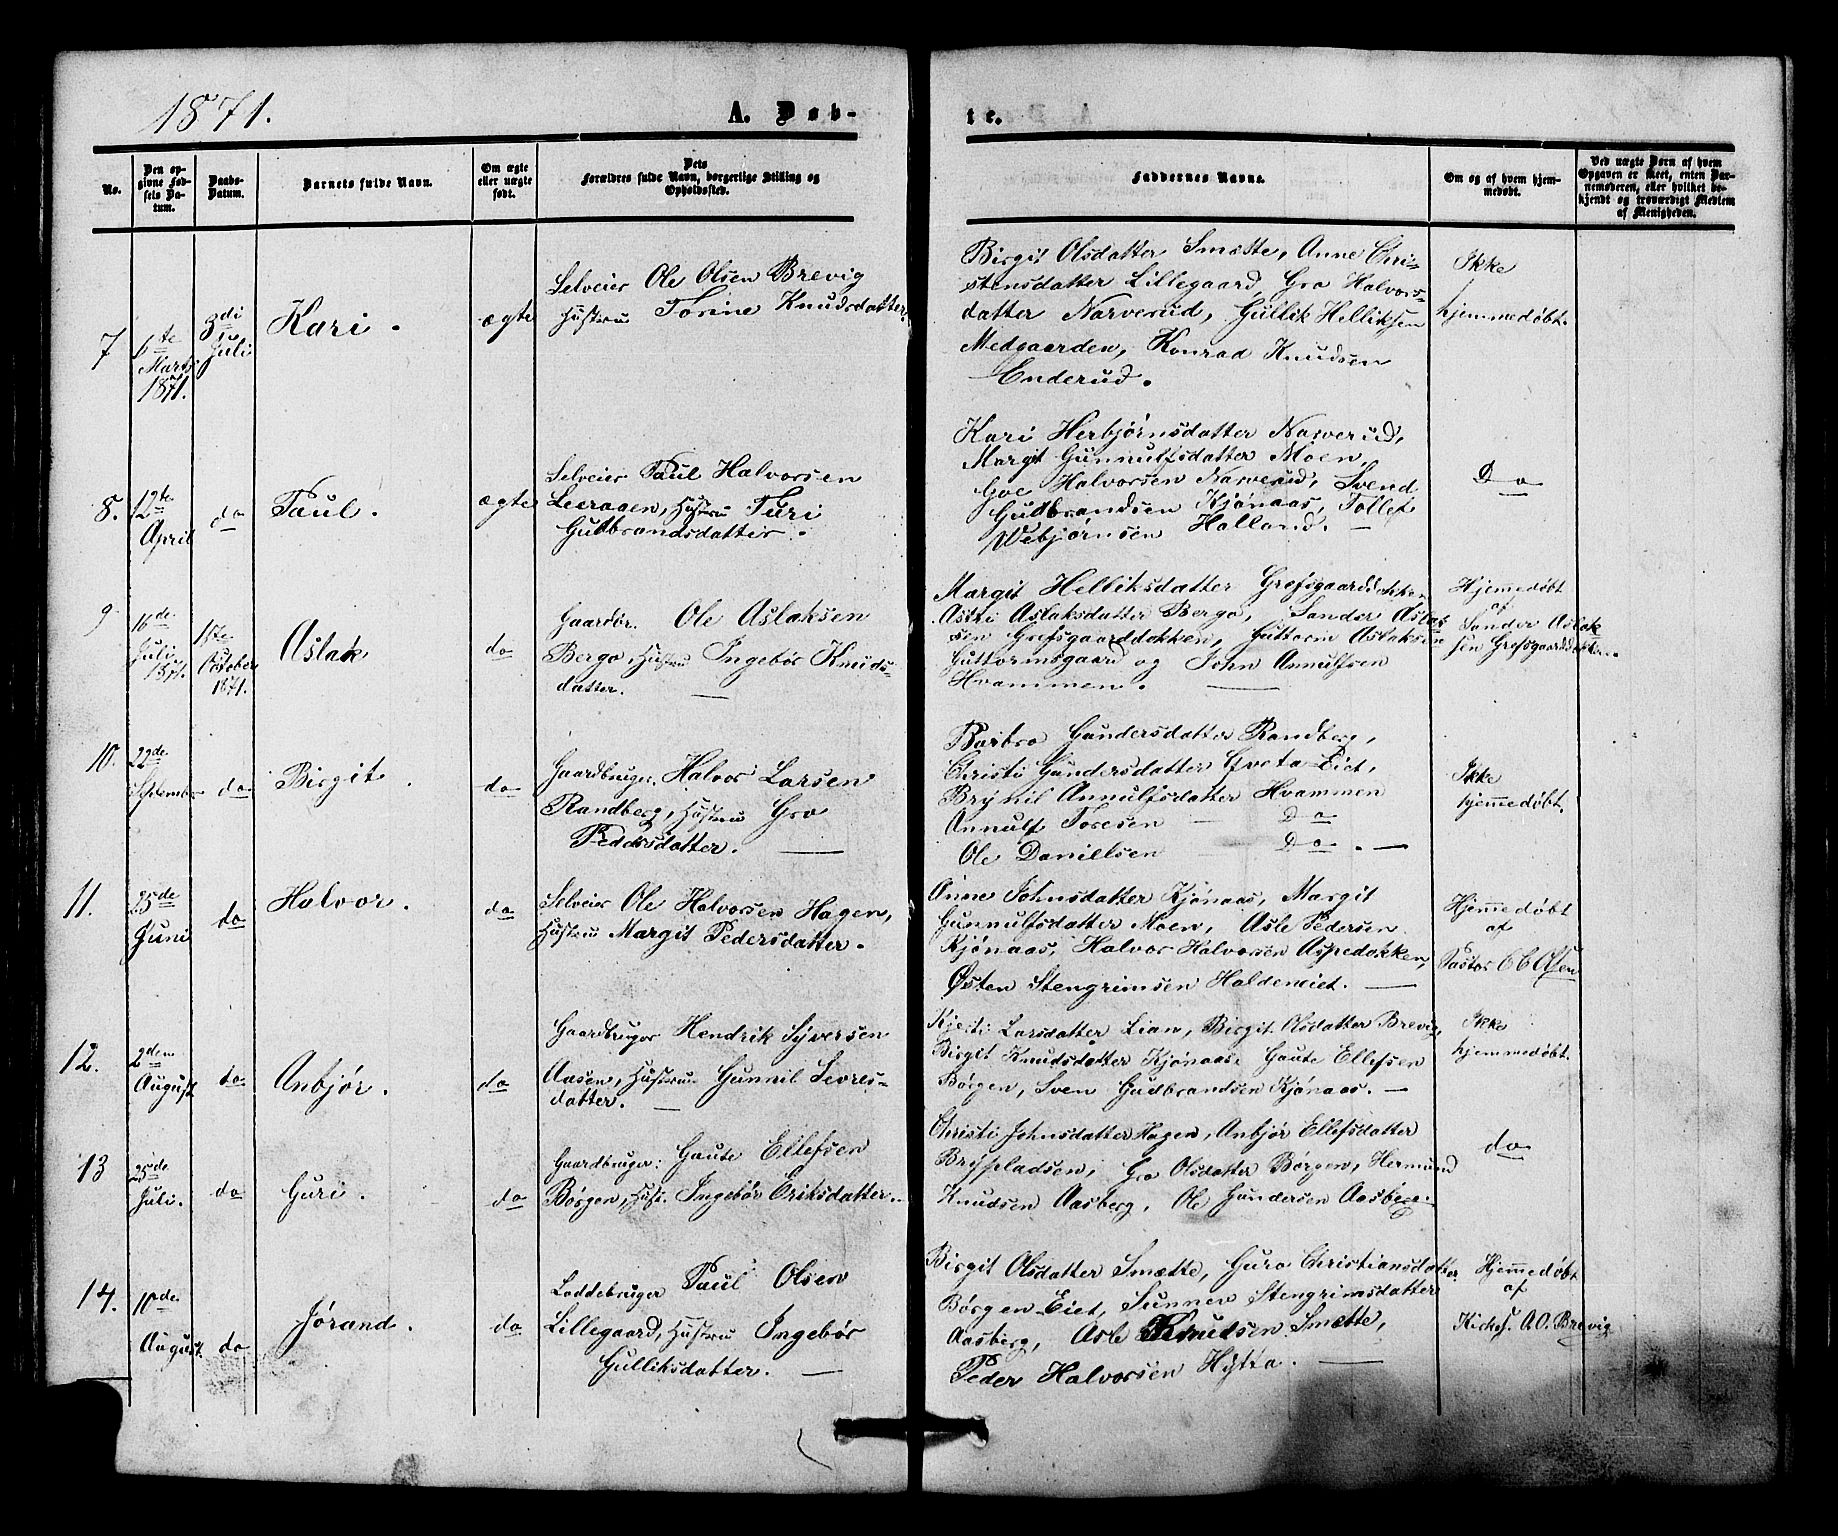 1871.
A. Døb-
te.
No.
Den op-
givne Fød-
sels Da-
tum.
Daabs-
Datum.
Barnets fulde Navn.
Om ægte
eller uægte
født.
Dets
Forældres fulde Navn, borgerlige Stilling og
Opholdssted.
Faddernes Navne.
Om og af hvem hjem-
medøbt.
Ved uægte Børn af hvem
Opgaven er skeet, enten Bar-
nemoderen, eller hvilket be-
kjendt og troværdigt Medlem
af Menigheden.
7
6te
Marts
1871.
3di
Juli
Kari.
ægte
Selveier Ole Olsen Brevig
Hustru Torine Knudsdatter.
Birgit Olsdatter Smætte, Anne Chri-
stensdatter Lillegaard, Gro Halvors-
datter Narverud, Gullik Helliksen
Medgaarden, Konrad Knudsen
Enderud.
Ikke
hjemmedøbt.
8.
12te
April
do
Paul.
ægte
Selveier Paul Halvorsen
Leeraaen, Hustru Turi
Gudbrandsdatter.
Kari Herbjørnsdatter Narverud,
Margit Gunnulfsdatter Moen
Goe Halvorsen Narverud, Svend
Gudbrandsen Kjønaas, Tollef
Webjørnsen Halland. —
Do
9
16de
Juli
1871.
15te
October
1871.
Aslak
do
Gaardbr. Ole Aslaksen
Bergo, Hustru Ingebør Knuds-
datter. —
Margit Helliksdatter Grofsgaarddokken
Astri Aslaksdatter Bergo, Sander Aslak
sen Grefsgaarddokken, Guttorm Aslaksen
Guttormsgaard og John Annulfsen
Hvammen. —
Hjemmedøbt
af
Sander Aslak
sen Grefsgaarddokken.
10.
22de
September
do
Birgit
do
Gaardbruger. Halvor Larsen
Randberg, Hustru Gro
Pedersdatter. —
Barbro Gundersdatter Randberg,
Christi Gundersdatter Eiet,
Brynil Annulfsdatter Hvammen
Annulf Toresen — Do
Ole Daniellsen — Do. —
Ikke
hjemmedøbt.
11.
25de
Juni
do
Halvor.
do
Selveier Ole Halvorsen Hagen,
Hustru Margit Pedersdatter.
Anne Johnsdatter Kjønaas, Margit
Gunnulfsdatter Moen, Asle Pedersen
Kjønaas, Halvor Halvorsen Aspedokken,
Østen Stengrimsen Haldeneiet. —
Hjemmedøbt
af
Pastor C C Olsen
12.
2den
August
do
Anbjør.
do
Gaardbruger Hendrik Syversen
Aasen, Hustru Gunnil Sevres-
datter. —
Kjersti Larsdatter Lian, Birgit Olsdatter Brevig,
Birgit Knudsdatter Kjønaas. Gaute Ellefsen
Børgen, Sven Gudbrandsen Kjønaas. —
Ikke
hjemmedøbt.
13
25de
Juli.
do
Guri.
do
Gaardbruger: Gaute Ellefsen
Børgen, Hust. Ingebør Eriksdatter.
Christi Johnsdatter Hagen, Anbjør Ellefsdatter
Brygpladsen, Gro Olsdatter Børgen, Hermund
Knudsen Aasberg, Ole Gundersen Aasberg.
do
14.
10de
August
do
Jørand.
do
Loddebruger Paul Olsen
Lillegaard, Hustru Ingebør
Gulliksdatter. —
Birgit Olsdatter Smætte, Guro Christiansdatter
Børgen Eiet, Sunnev Stengrimsdatter
Aasberg, Asle Knudsen Smætte,
Peder Halvorsen Hytta. —
Hjemmedøbt
af
Kirkes. A. O. Brevig